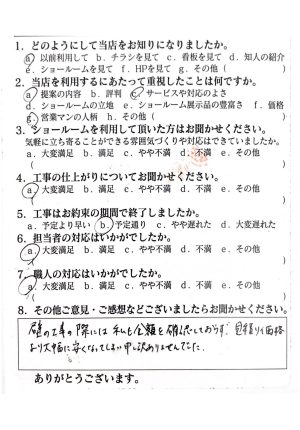 1. どのようにして当店をお知りになりましたか。
a. 以前利用して b. チラシを見て c. 看板を見て d. 知人の紹介
e. ショールームを見て f. HPを見て g. その他( )
2. 当店を利用するにあたって重視したことは何ですか。
a. 提案の内容 b. 評判 c. サービスや対応のよさ
d. ショールームの立地 e. ショールーム展示品の豊富さ f. 価格
g. 営業マンの人柄 h. その他( )
3. ショールームを利用して頂いた方はお聞かせください。
気軽に立ち寄ることができる雰囲気づくりや対応はできていましたか。
a. 大変満足 b. 満足 c. やや不満 d. 不満 e. その他
( )
4. 工事の仕上がりについてお聞かせください。
a. 大変満足 b. 満足 c. やや不満 d. 不満 e. その他
( )
5. 工事はお約束の期間で終了しましたか。
a. 予定より早い b. 予定通り c. やや遅れた d. 大変遅れた
6. 担当者の対応はいかがでしたか。
a. 大変満足 b. 満足 c. やや不満 d. 不満 e. その他
( )
7. 職人の対応はいかがでしたか。
a. 大変満足 b. 満足 c. やや不満 d. 不満 e. その他
( )
8. その他ご意見・ご感想などございましたらお聞かせください。
壁の工事の際には私も金額を確認しておらず、見積り価格
より大幅に安くなってしまい申し訳ありませんでした。
ありがとうございます。